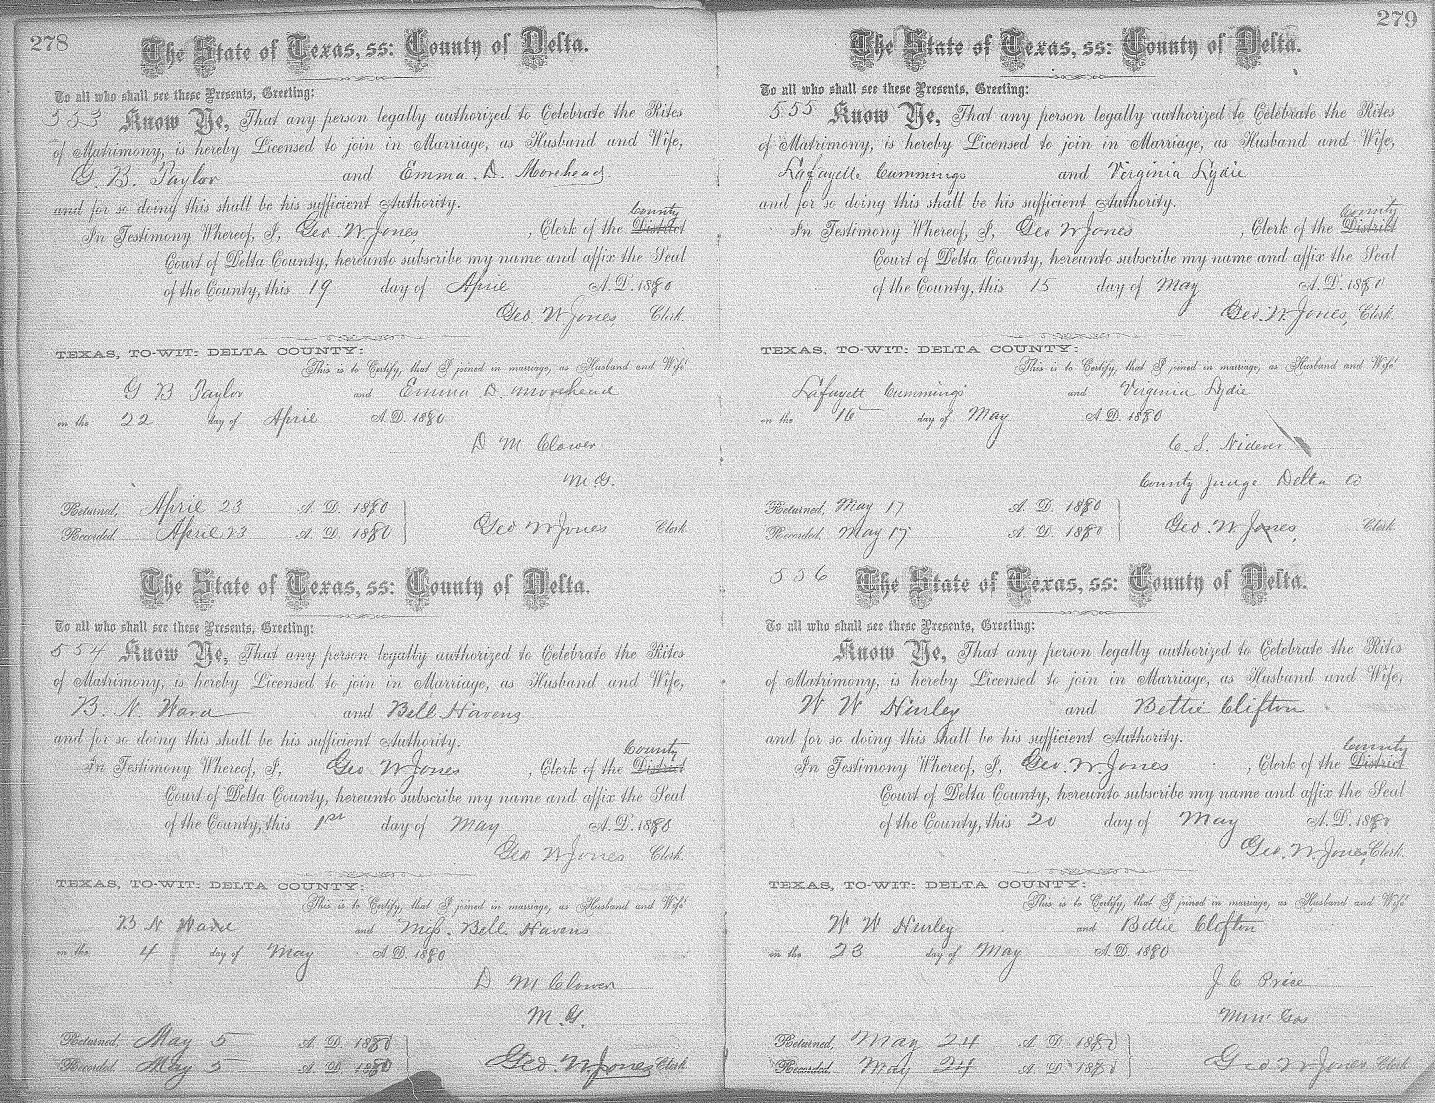 278
The State of Texas, ss: County of Delta.
To all who shall see these Presents, Greeting:
553 Know Ye, That any person legally authorized to Celebrate the Rites
of Matrimony, is hereby Licensed to join in Marriage, as Husband and Wife,
G. B. Taylor and Emma. D. Morehead
and for so doing this shall be his sufficient Authority.
County
In Testimony Whereof, I, Geo W Jones, Clerk of the District
Court of Delta County, hereunto subscribe my name and affix the Seal
of the County, this 19 day of April A.D. 1880
Geo W Jones, Clerk.
TEXAS, TO-WIT: DELTA COUNTY:
This is to Certify, that I joined in marriage, as Husband and Wife
G B Taylor and Emma D Morehead
on the 22 day of April A.D. 1880
D M Clower
M G.
Returned, April 23 A. D. 1880
Recorded April 23 A. D. 1880 Geo W Jones Clerk
The State of Texas, ss: County of Delta.
To all who shall see these Presents, Greeting:
554 Know Ye, That any person legally authorized to Celebrate the Rites
of Matrimony, is hereby Licensed to join in Marriage, as Husband and Wife,
B. N. Ward and Bell Havens
and for so doing this shall be his sufficient Authority.
County
In Testimony Whereof, I, Geo W Jones, Clerk of the District
Court of Delta County, hereunto subscribe my name and affix the Seal
of the County, this 1st day of May A.D. 1880
Geo W Jones Clerk.
TEXAS, TO-WIT: DELTA COUNTY:
This is to Certify, that I joined in marriage, as Husband and Wife
B N Ward and Miss. Bell Havens
on the 4 day of May A.D. 1880
D M Clower
M. G.
Returned, May 5 A. D. 1880
Recorded May 5 A. D. 1880 Geo. W Jones Clerk
279
The State of Texas, ss: County of Delta.
To all who shall see these Presents, Greeting:
555 Know Ye, That any person legally authorized to Celebrate the Rites
of Matrimony, is hereby Licensed to join in Marriage, as Husband and Wife,
Lafayette Cummings and Virginia Lydie
and for so doing this shall be his sufficient Authority.
County
In Testimony Whereof, I, Geo W Jones, Clerk of the District
Court of Delta County, hereunto subscribe my name and affix the Seal
of the County, this 15 day of May A.D. 1880
Geo. W. Jones, Clerk.
TEXAS, TO-WIT: DELTA COUNTY:
This is to Certify, that I joined in marriage, as Husband and Wife
Lafayett Cummings and Virginia Lydie
on the 16 day of May A.D. 1880
C. S. Nidever
County Judge Delta Co
Returned, May 17 A. D. 1880
Recorded, May 17 A. D. 1880 Geo. W Jones, Clerk
556 The State of Texas, ss: County of Delta.
To all who shall see these Presents, Greeting:
Know Ye, That any person legally authorized to Celebrate the Rites
of Matrimony, is hereby Licensed to join in Marriage, as Husband and Wife,
W W Hurley and Bettie Clifton
and for so doing this shall be his sufficient Authority.
County
In Testimony Whereof, I, Geo. W. Jones, Clerk of the District
Court of Delta County, hereunto subscribe my name and affix the Seal
of the County, this 20 day of May A.D. 1880
Geo. W. Jones, Clerk.
TEXAS, TO-WIT: DELTA COUNTY:
This is to Certify, that I joined in marriage, as Husband and Wife
W W Hurley and Bettie Clifton
on the 23 day of May A.D. 1880
J C Price
Returned, May 24 A. D. 1880
Recorded, May 24 A. D. 1880 Geo W Jones Clerk